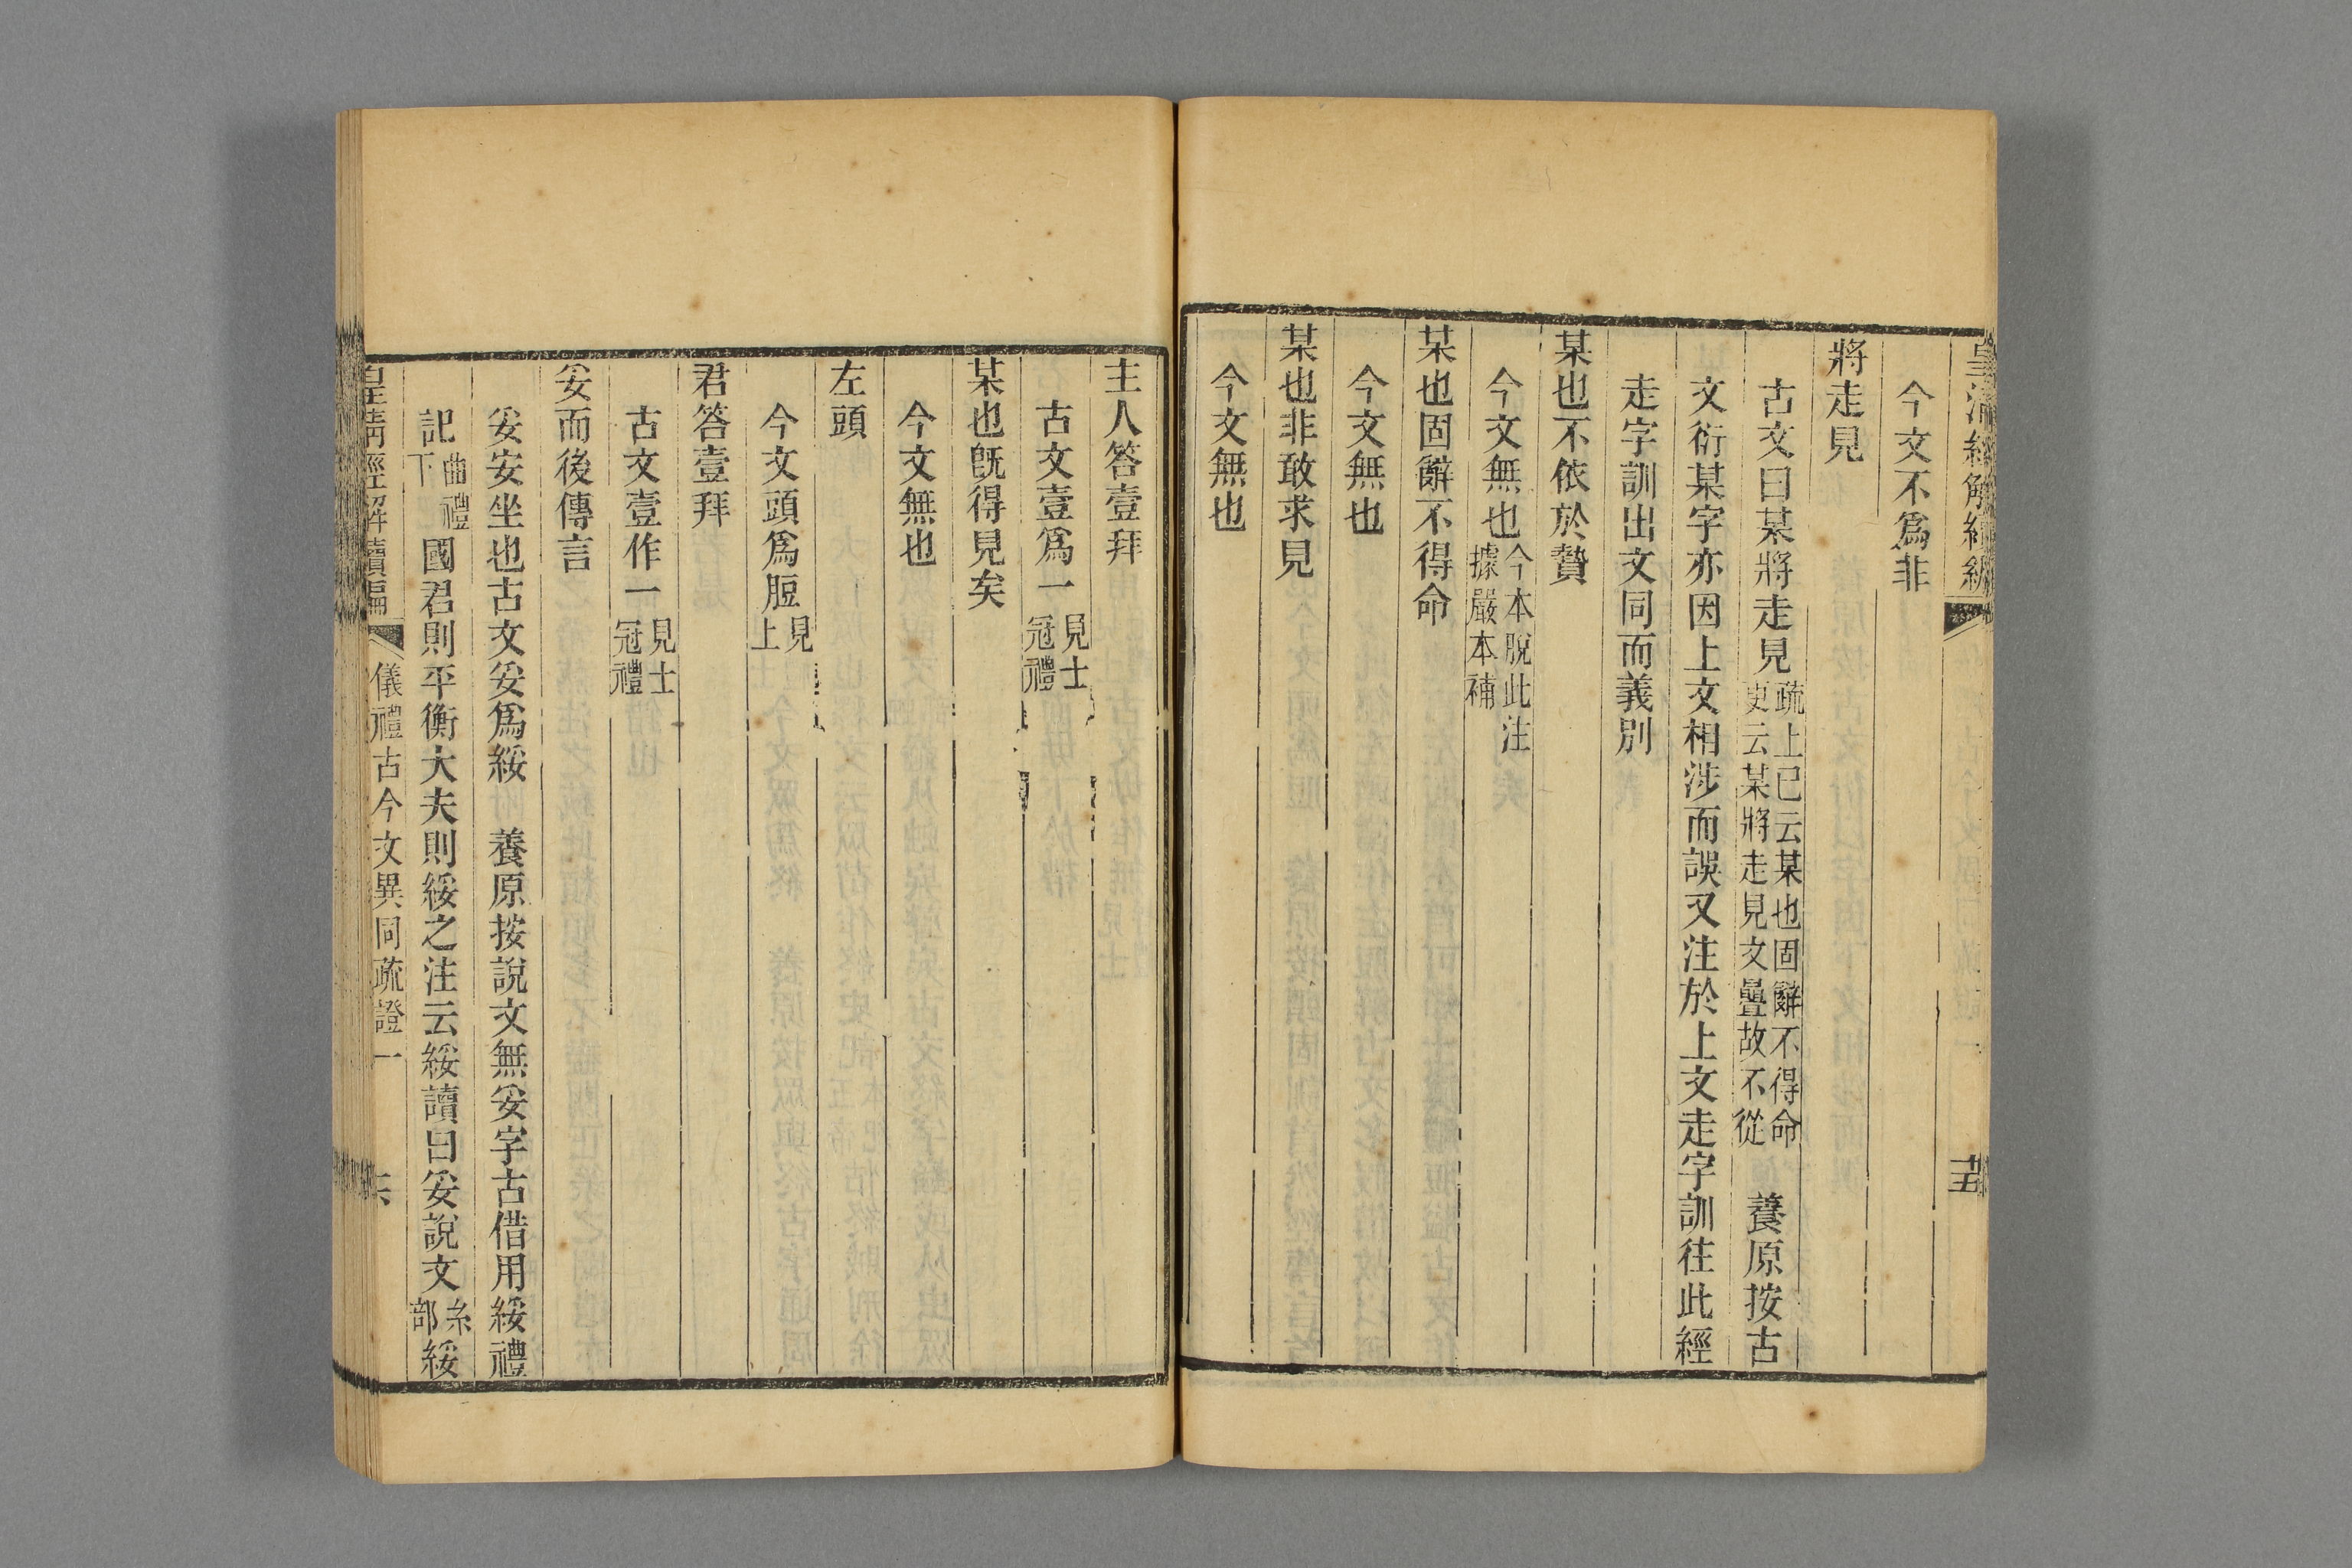 皇清經解續編
今文不爲非
將走見
古文曰某將走見疏上已云某也固辭不得命更云某將走見文疊故不從　養原按古
文衍某字亦因上文相涉而誤又注於上文走字訓往此經
走字訓出文同而義別
某也不依於贄
今文無也今本脫此注據嚴本補
某也固辭不得命
今文無也
某也非敢求見
今文無也
主人答壹拜
古文壹爲一見士冠禮
某也旣得見矣
今文無也
左頭
今文頭爲脰見上
君答壹拜
古文壹作一見士冠禮
妥而後傳言
妥安坐也古文妥爲綏　養原按說文無妥字古借用綏禮
記曲禮下國君則平衡大夫則綏之注云綏讀曰妥說文糸部綏
皇清經解續編　儀禮古今文異同疏證一